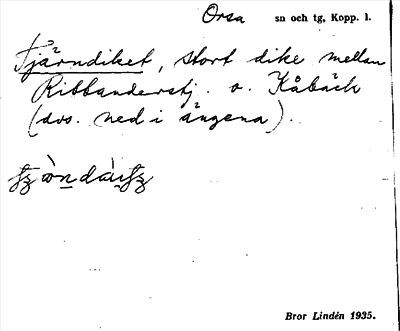 Orsa sn och tg, Kopp. l.
Tjärndiket, stort dike mellan
Ribbanderstj. o. Kåbäck
(dvs. ned i ängena).
Bror Lindén 1935.